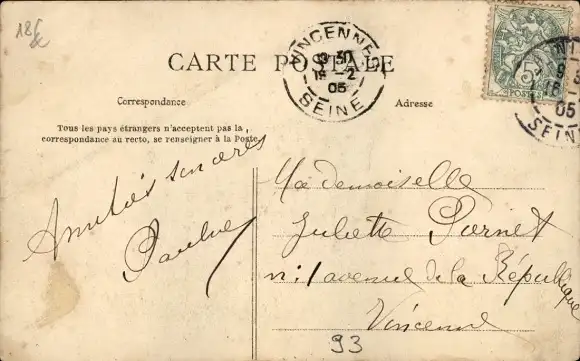 18
CARTE POSTALE
VINCENNES
9 30
18-2
05
SEINE
5
POSTES
05
SEINE
Correspondance
Adresse
Tous les pays étrangers n'acceptent pas la
correspondance au recto, se renseigner à la Poste
Amitiés sincères
Pauline
Mademoiselle
Juliette Pornet
n: 1 avenue de la République
Vincenne
93